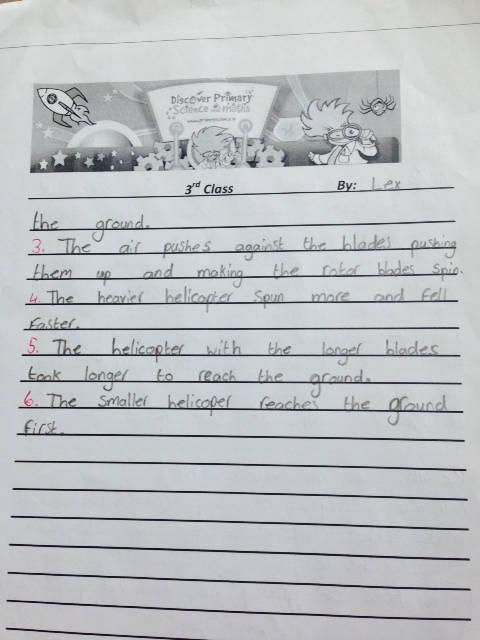 Discover Primary
Science and maths
www.primaryscience.ie
3rd Class By: Lex
the ground.
3. The air pushes against the blades pushing
them up and making the rotor blades spin.
4. The heavier helicopter spun more and fell
faster.
5. The helicopter with the longer blades
took longer to reach the ground.
6. The smaller helicoper reaches the ground
first.